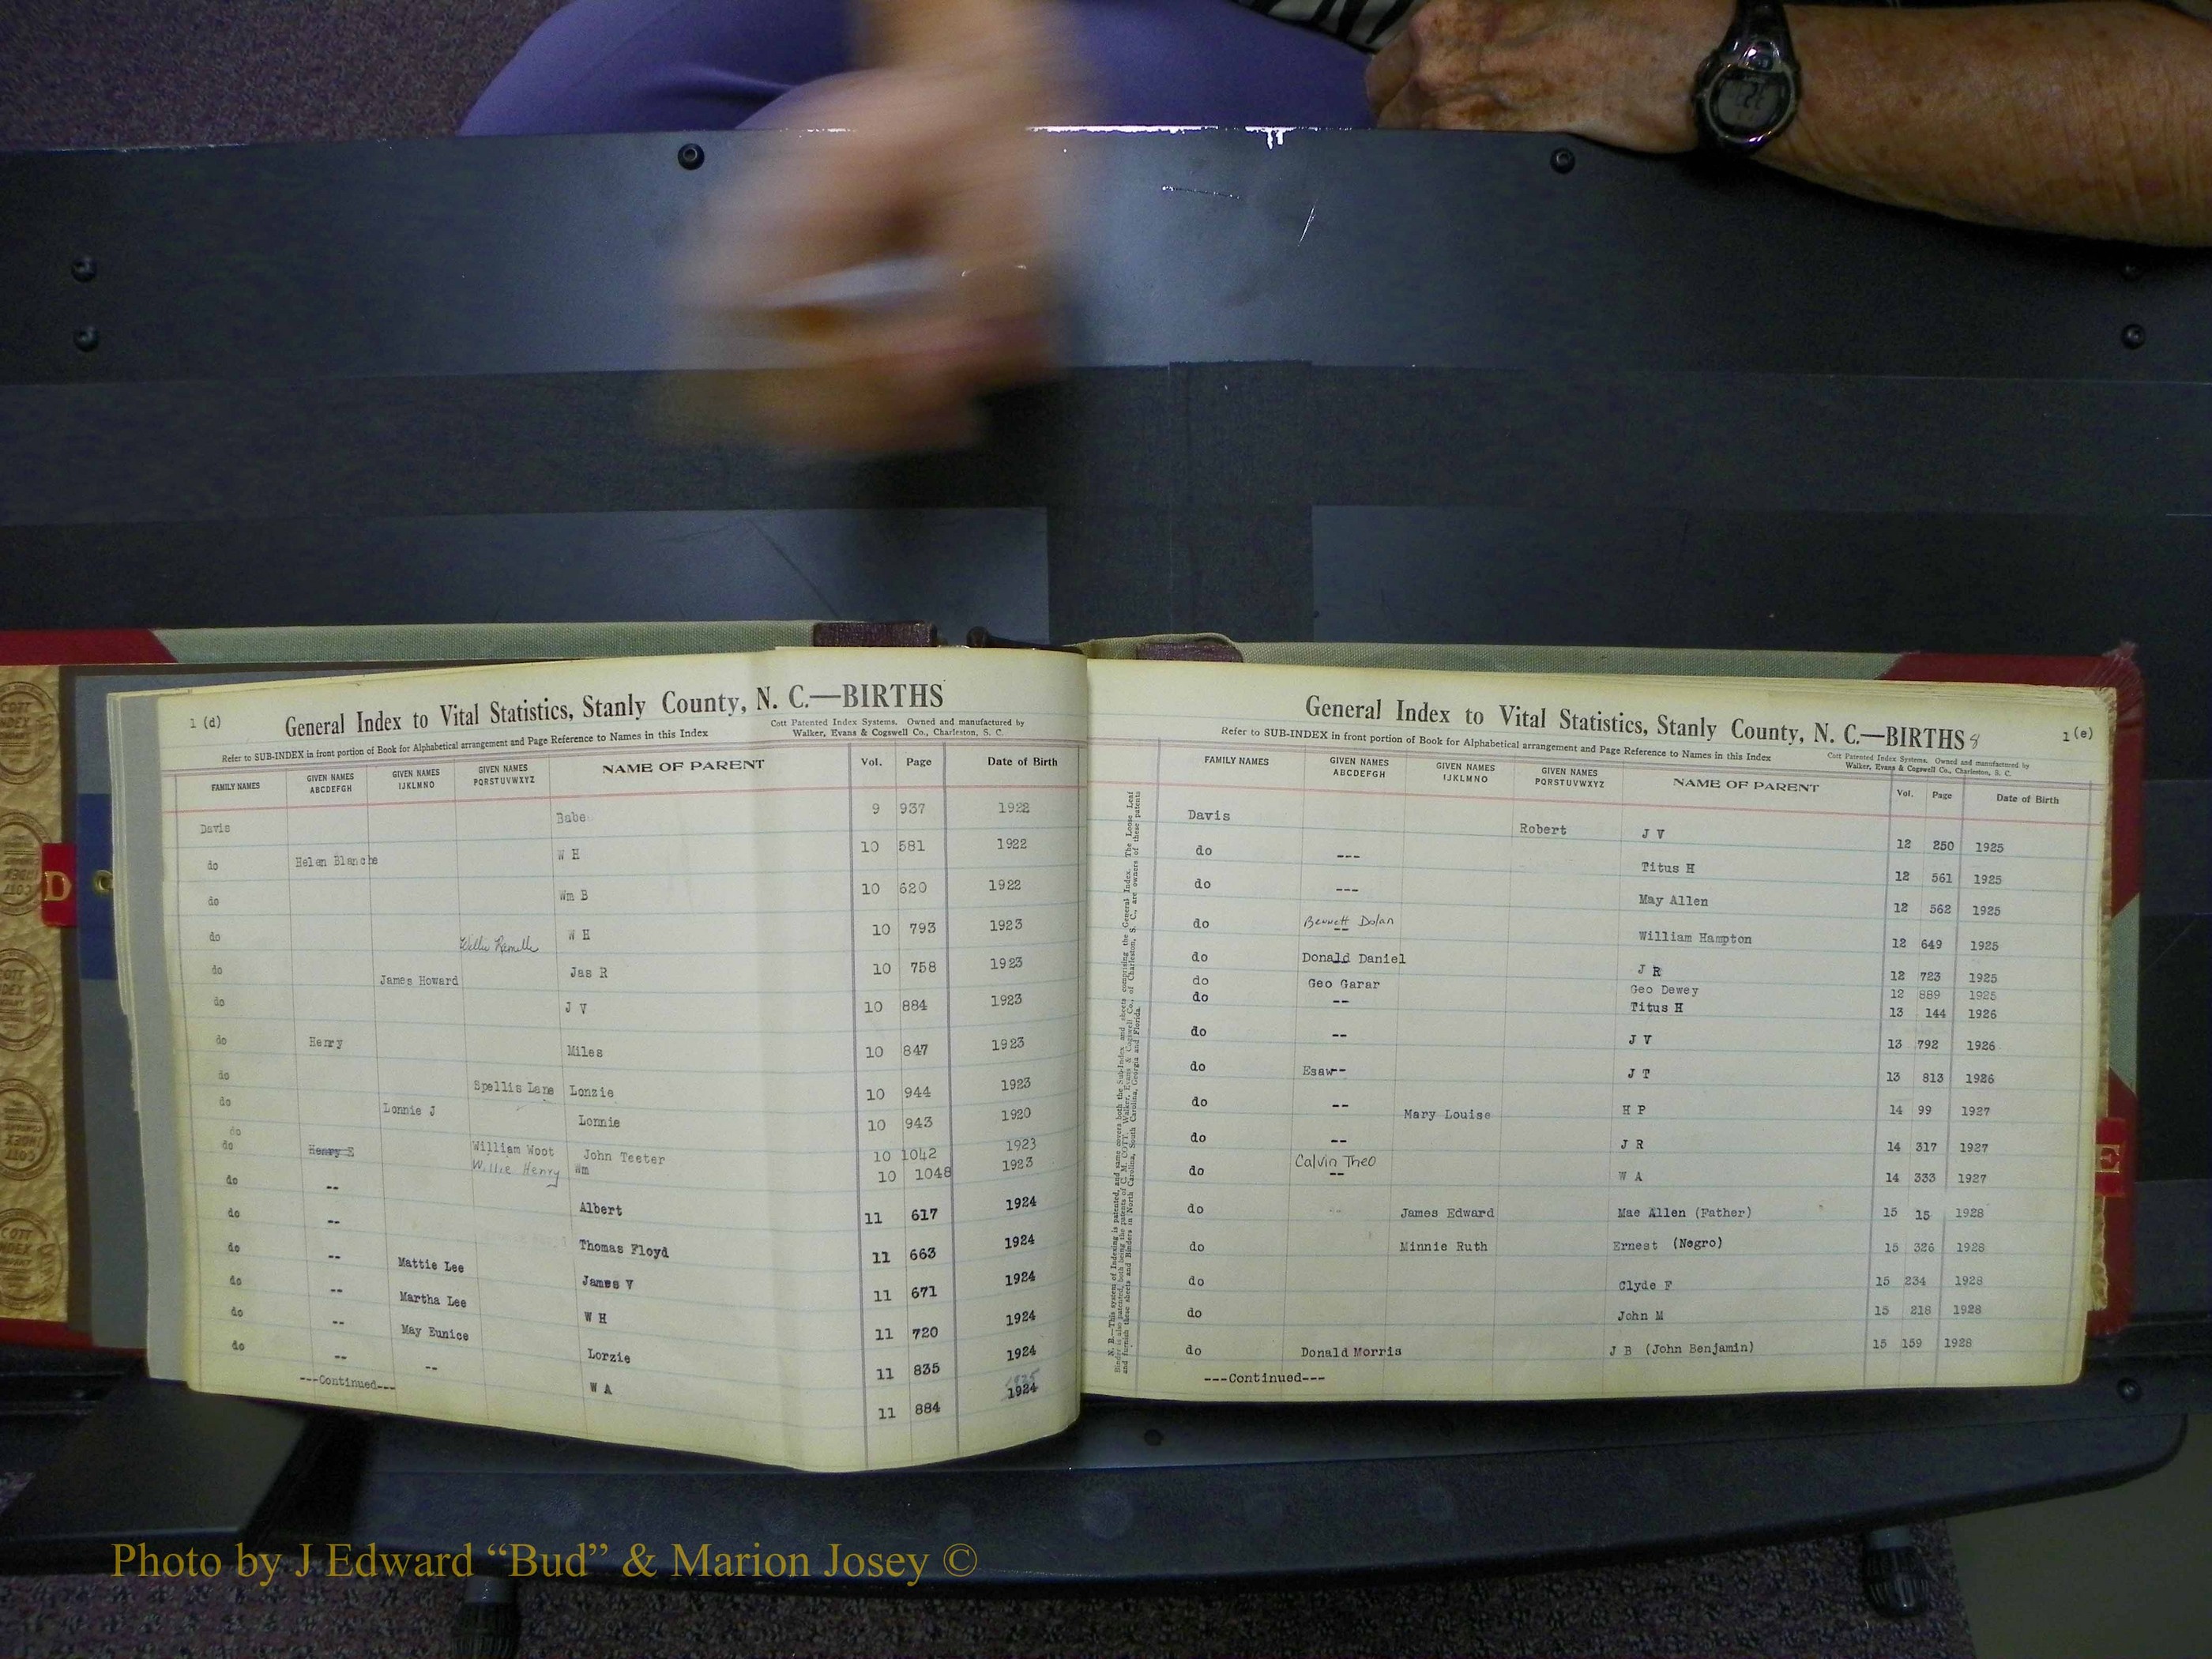 1 (d)
General Index to Vital Statistics, Stanly County, N. C.—BIRTHS
Cott Patented Index Systems. Owned and manufactured by
Walker, Evans & Cogswell Co., Charleston, S. C.
Refer to SUB-INDEX in front portion of Book for Alphabetical arrangement and Page Reference to Names in this Index
FAMILY NAMES GIVEN NAMES ABCDEFGH GIVEN NAMES IJKLMNO GIVEN NAMES PQRSTUVWXYZ NAME OF PARENT Vol. Page Date of Birth
Davis Babe 9 937 1922
do Helen Blanche W H 10 581 1922
do Wm B 10 620 1922
do Willie W H 10 793 1923
do James Howard Jas R 10 758 1923
do J V 10 884 1923
do Henry Miles 10 847 1923
do Spellis Lane Lonzie 10 944 1923
do Lonnie J Lonnie 10 943 1920
do William Woot John Teeter 10 1042 1923
do Henry E Willie Henry Wm 10 1048 1923
do -- Albert 11 617 1924
do -- Thomas Floyd 11 663 1924
do -- Mattie Lee James V 11 671 1924
do -- Martha Lee W H 11 720 1924
do -- May Eunice Lorzie 11 835 1924
do -- -- W A 11 884 1925 1924
---Continued---
General Index to Vital Statistics, Stanly County, N. C.—BIRTHS 8
1 (e)
Refer to SUB-INDEX in front portion of Book for Alphabetical arrangement and Page Reference to Names in this Index
Cott Patented Index Systems. Owned and manufactured by
Walker, Evans & Cogswell Co., Charleston, S. C.
FAMILY NAMES GIVEN NAMES ABCDEFGH GIVEN NAMES IJKLMNO GIVEN NAMES PQRSTUVWXYZ NAME OF PARENT Vol. Page Date of Birth
Davis Robert J V 12 250 1925
do --- Titus H 12 561 1925
do --- May Allen 12 562 1925
do Bennett Dolan -- William Hampton 12 649 1925
do Donald Daniel J R 12 723 1925
do Geo Garar Geo Dewey 12 889 1925
do -- Titus H 13 144 1926
do -- J V 13 792 1926
do Esaw-- J T 13 813 1926
do -- Mary Louise H P 14 99 1927
do -- J R 14 317 1927
do Calvin Theo -- W A 14 333 1927
do -- James Edward Mae Allen (Father) 15 15 1928
do Minnie Ruth Ernest (Negro) 15 326 1928
do Clyde F 15 234 1928
do John M 15 218 1928
do Donald Morris J B (John Benjamin) 15 159 1928
---Continued---
D
E
COTT
INDEX
Photo by J Edward “Bud” & Marion Josey ©